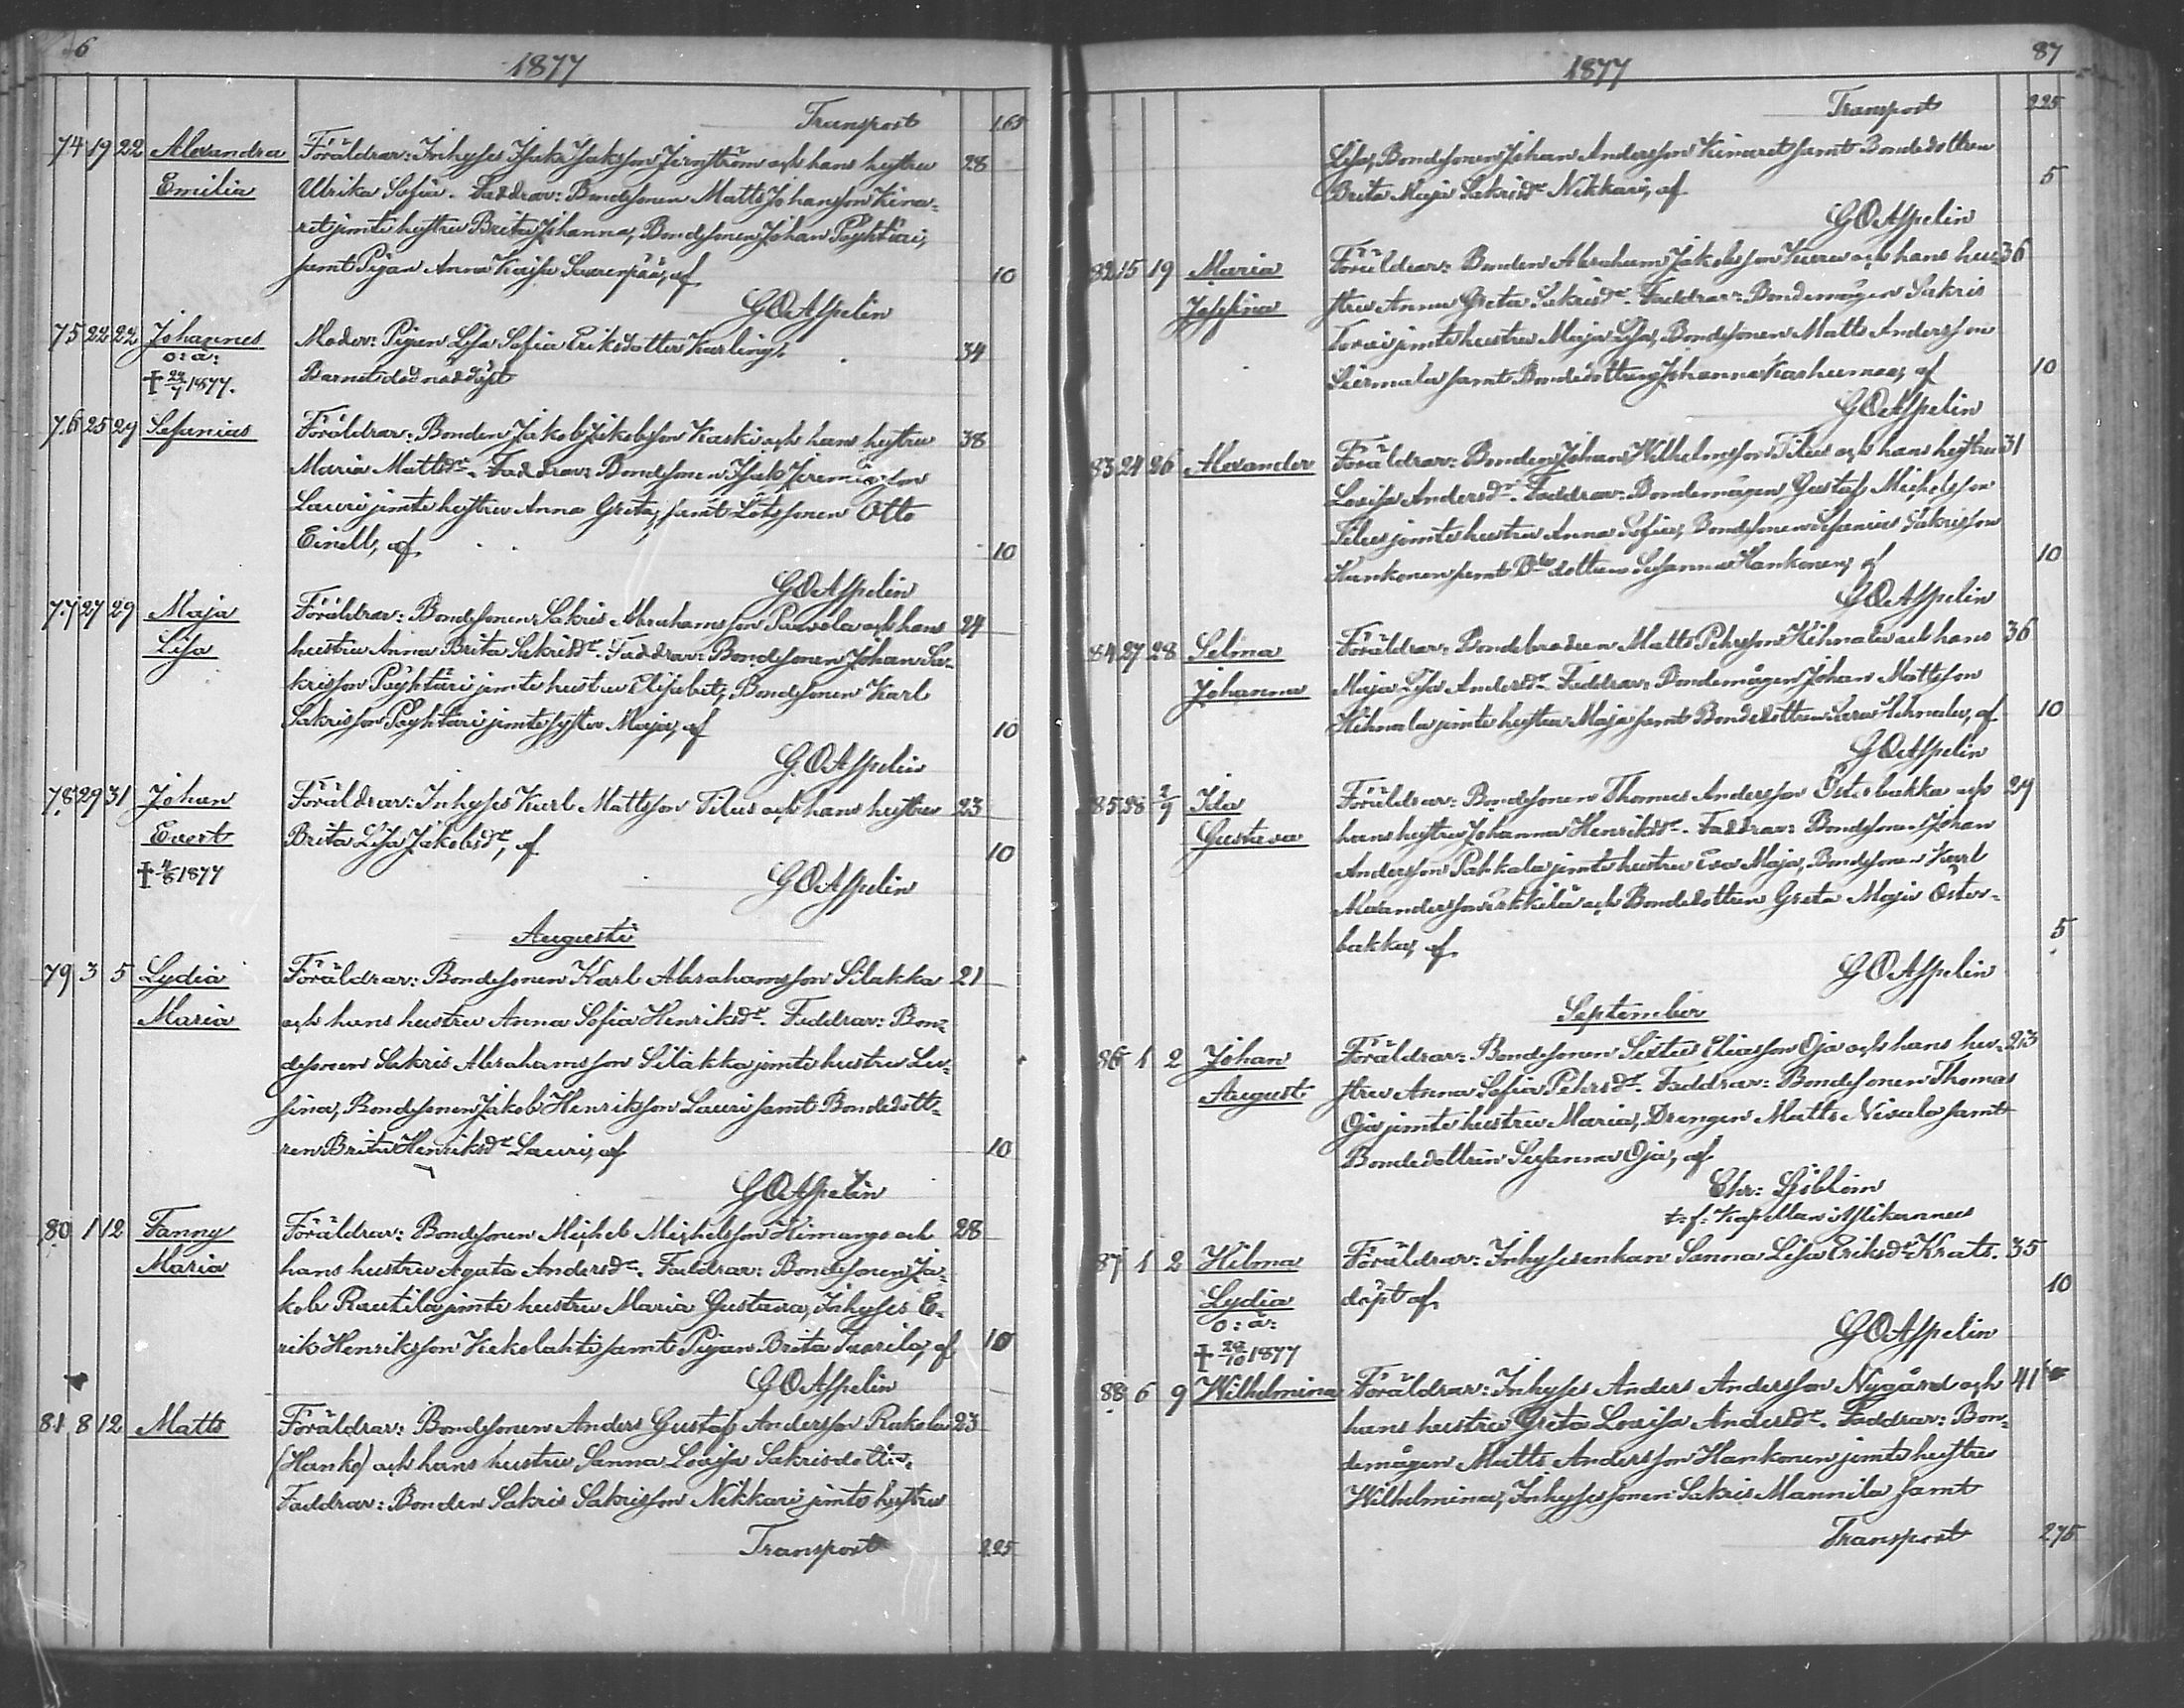 6
1877
Transport 165
74 19 22 Alexandra Föräldrar: Inhyses Isak Isaksson Jernström och hans hustru 28
Emilia Ulrika Sofia. Faddrar: Bondesonen Matts Johansson Kina-
ret jimte hustru Brita Johanna, Bondesonen Johan Pöyhtäri,
samt Pigan Anna Kajsa Saarenpää, af 10
G O Aspelin
75 22 22 Johannes Moder: Pigan Lisa Sofia Eriksdotter Karling. 34
o: ä: Barnet död nöddöpt
† 22/7 1877.
76 25 29 Sefanias Föräldrar: Bonden Jakob Jakobsson Kaski och hans hustru 38
Maria Mattsdr. Faddrar: Bondesonen Isak Jeremiasson
Lauri jimte hustru Anna Greta, samt Lotssonen Otto
Einell, af 10
G O Aspelin
77 27 29 Maja Föräldrar: Bondesonen Sakris Abrahamsson Pawola och hans 24
Lisa hustru Anna Brita Sakrisdr. Faddrar: Bondesonen Johan Sa-
krisson Pöyhtäri jimte hustru Elisabet, Bondesonen Karl
Sakrisson Pöyhtäri jimte syster Maja, af 10
G. O Aspelin
78 29 31 Johan Föräldrar: Inhyses Karl Mattsson Tilus och hans hustru 23
Evert Brita Lisa Jakobsdr, af 10
† 4/8 1877 G O Aspelin
Augusti
79 3 5 Lydia Föräldrar: Bondesonen Karl Abrahamsson Silakka 21
Maria och hans hustru Anna Sofia Henriksdr. Faddrar: Bon-
desonen Sakris Abrahamsson Silakka jimte hustru Lov-
sina, Bondesonen Jakob Henriksson Lauri samt Bondedott-
ren Brita Henriksdr Lauri, af 10
G O Aspelin
80 1 12 Fanny Föräldrar: Bondesonen Michel Michelsson Himango och 28
Maria hans hustru Agata Andersdr. Faddrar: Bondesonen Ja-
kob Rautila jimte hustru Maria Gustava, Inhyses E-
rik Henriksson Kekolahti samt Pigan Brita Tuorila, af 10
G O Aspelin
81 8 12 Matts Föräldrar: Bondesonen Anders Gustaf Andersson Rakola 23
(Hanko) och hans hustru Sanna Lovisa Sakrisdotter.
Faddrar: Bonden Sakris Sakrisson Nikkari jimte hustru
Transport 225
87
1877
Transport 225
Lisa, Bondesonen Johan Andersson Kinaret samt Bondedottren
Brita Maja Sakrisdr Nikkari, af 5
G O Aspelin
82 15 19 Maria Föräldrar: Bonden Abraham Jakobsson Kuru och hans hu- 36
Josefina stru Anna Greta Sakrisdr. Faddrar: Bondemågen Sakris
Torvi jimte hustru Maja Lisa, Bondesonen Matts Andersson
Siermala samt Bondedottren Johanna Kashumaa, af 10
G O Aspelin
83 24 26 Alexander Föräldrar: Bonden Johan Wilhelmsson Tilus och hans hustru 31
Lovisa Andersdr. Faddrar: Bondemågen Gustaf Michelsson
Tilus jimte hustru Anna Sofia, Bondesonen Sefanias Sakrisson
Hankonen samt Bdedottren Susanna Hankonen, af 10
G O Aspelin
84 27 28 Selma Föräldrar: Bondebroden Matts Pehrsson Hihnala och hans 36
Johanna Maja Lisa Andersdr. Faddrar: Bondemågen Johan Mattsson
Hihnala jimte hustru Maja samt Bondedottren Sara Hihnala, af 10
G O Aspelin
85 28 2/9 Ida Föräldrar: Bondesonen Thomas Andersson Österbakka och 29
Gustava hans hustru Johanna Henriksdr. Faddrar: Bondesonen Johan
Andersson Pahkala jimte hustru Eva Maja, Bondesonen Karl
Alexandersson Erkkilä och Bondedottren Greta Maja Öster-
bakka, af 5
G O Aspelin
September
86 1 2 Johan Föräldrar: Bondesonen Sixtus Eliasson Oja och hans hu- 23
August stru Anna Sofia Pehrsdr. Faddrar: Bondesonen Thomas
Oja jimte hustru Maria, Drengen Matts Nivala samt
Bondedottren Susanna Oja, af
Chr: Sjöblom
t: f: Kapellan i
87 1 2 Hilma Föräldrar: Inhysesenkan Sanna Lisa Eriksdr Krats. 35
Lydia döpt af 10
o: ä: G O Aspelin
† 29/10 1877
88 6 9 Wilhelmina Föräldrar: Inhyses Anders Andersson Nygård och 41
hans hustru Greta Lovisa Andersdr. Faddrar: Bon-
demågen Matts Andersson Hankonen jimte hustru
Wilhelmina, Inhysessonen Sakris Mannila samt
Transport 275